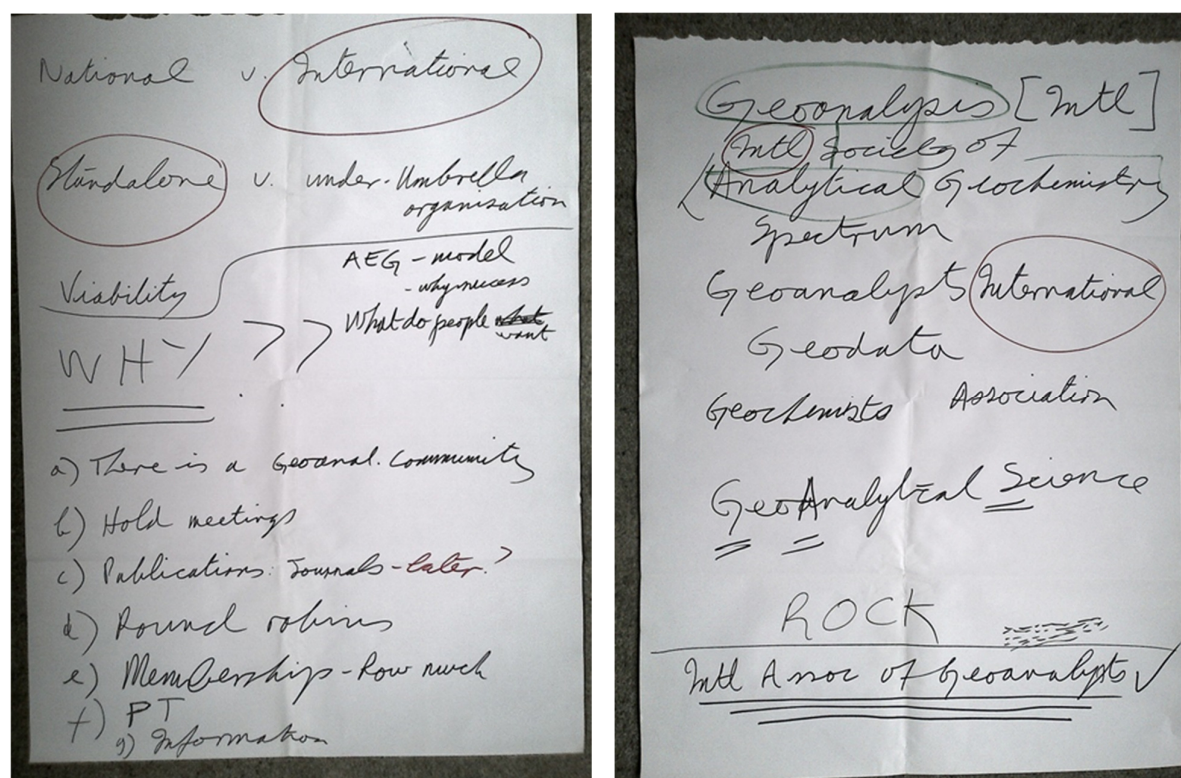 National v. International
Standalone v. under-Umbrella
organisation
Viability
AEG - model
- why success
What do people what
want
WHY
a) There is a Geoanal. Community
b) Hold meetings
c) Publications: Journals - later?
d) Round robins
e) Memberships - How much
f) PT
g) Information
Geoanalysis [Intl]
Intl Society of
(Analytical Geochemistry
Spectrum
Geoanalysts International
Geodata
Geochemists Association
GeoAnalytical Science
ROCK
Intl Assoc of Geoanalysts ✓